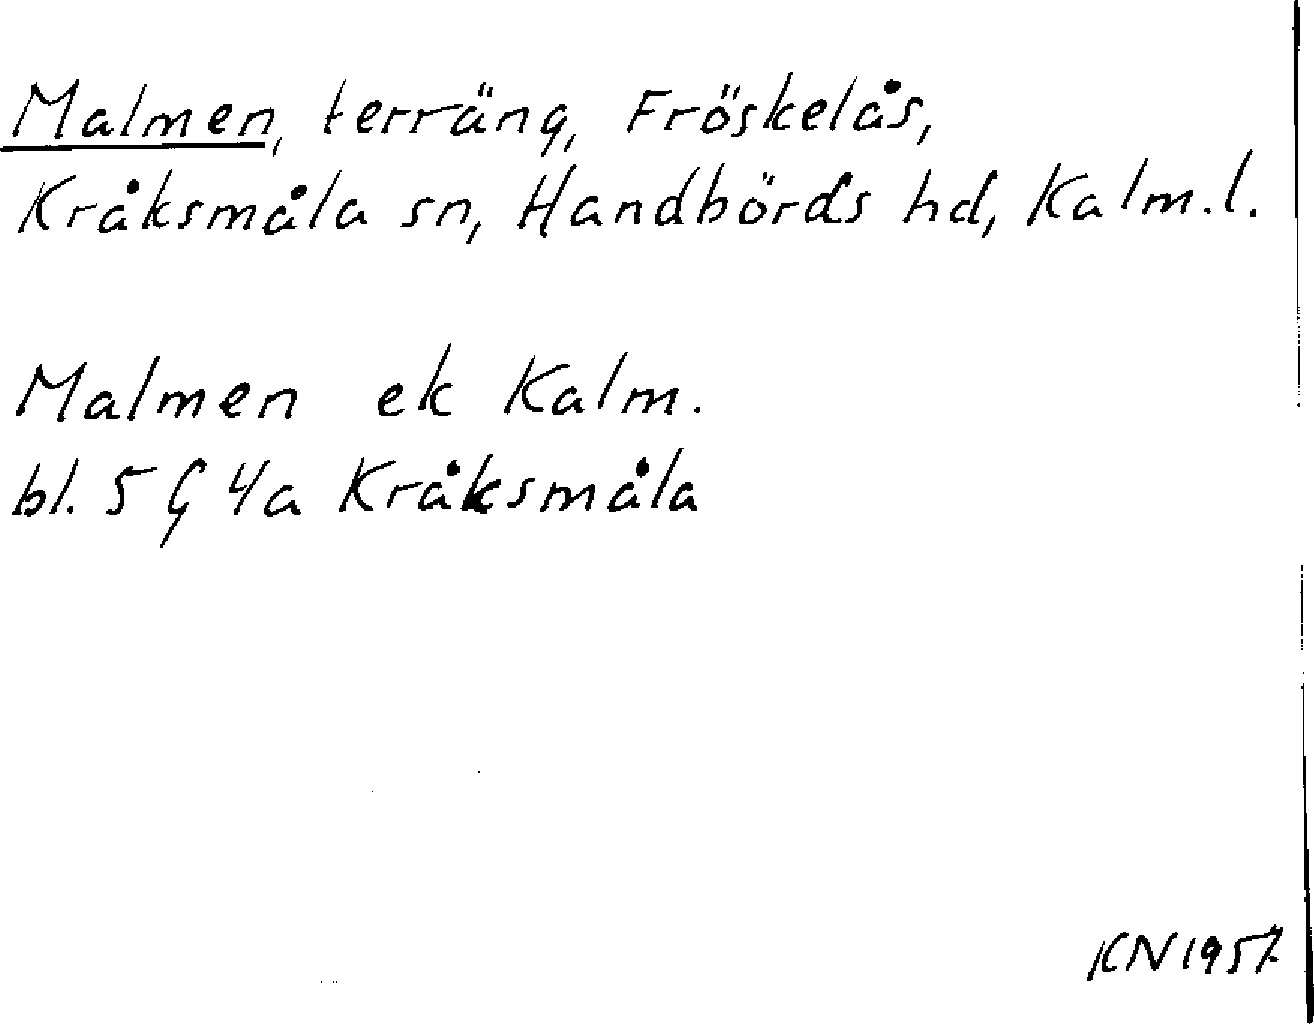 Malmen, terräng, Fröskelås,
Kråksmåla sn, Handbörds hd, Kalm.l.
Malmen ek Kalm.
bl. 5 G 4a Kråksmåla
KN 1957.